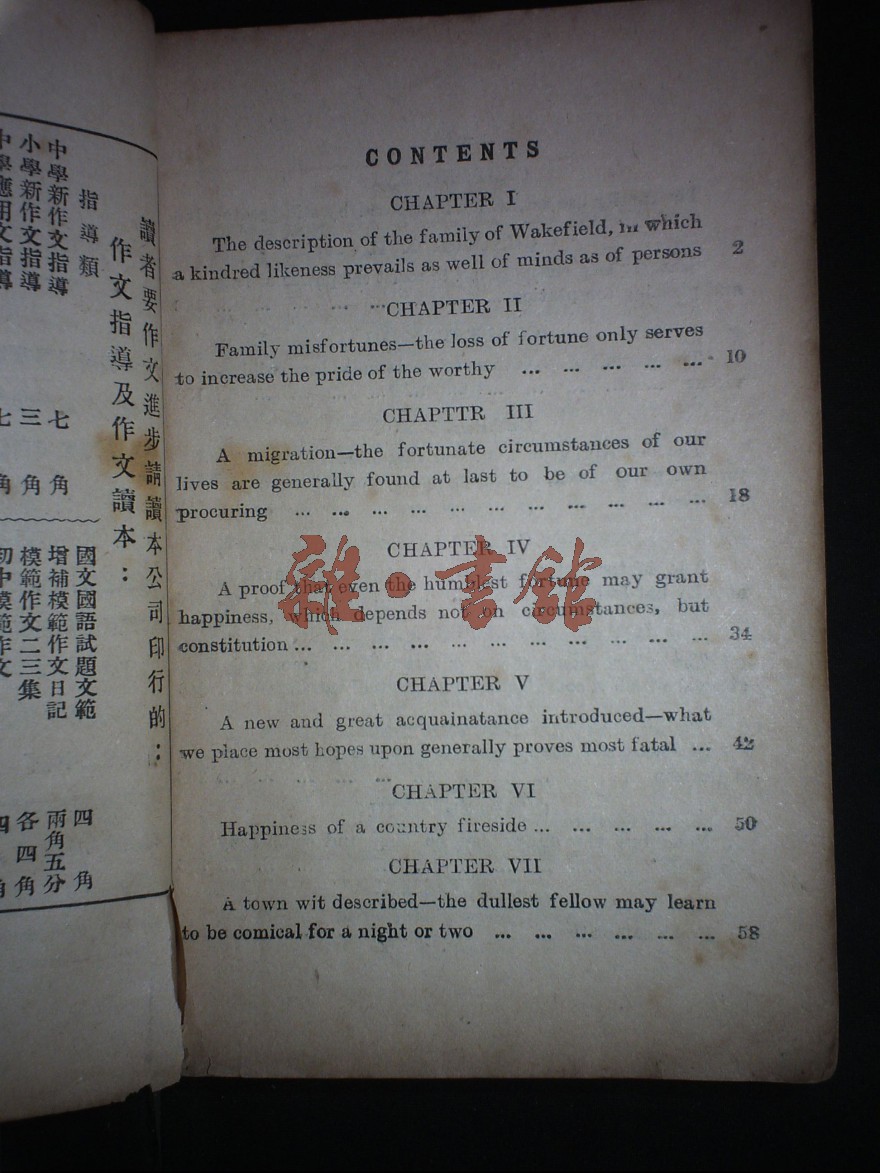 讀者要作文進步請讀本公司印行的：
作文指導及作文讀本：
指導類
中學新作文指導 七角
小學新作文指導 三角
中學應用文指導 七角
國文國語試題文範 四角
增補模範作文日記 兩角五分
模範作文二三集 各四角
初中模範作文 四角
CONTENTS
CHAPTER I
The description of the family of Wakefield, in which
a kindred likeness prevails as well of minds as of persons 2
CHAPTER II
Family misfortunes—the loss of fortune only serves
to increase the pride of the worthy ... ... ... ... ... 10
CHAPTTR III
A migration—the fortunate circumstances of our
lives are generally found at last to be of our own
procuring ... ... ... ... ... ... ... ... ... ... ... 18
CHAPTER IV
A proof that even the humblest fortune may grant
happiness, which depends not on circumstances, but
constitution ... ... ... ... ... ... ... ... ... ... ... 34
CHAPTER V
A new and great acquainatance introduced—what
we place most hopes upon generally proves most fatal ... 42
CHAPTER VI
Happiness of a country fireside ... ... ... ... ... 50
CHAPTER VII
A town wit described—the dullest fellow may learn
to be comical for a night or two ... ... ... ... ... ... 58
雜·書館